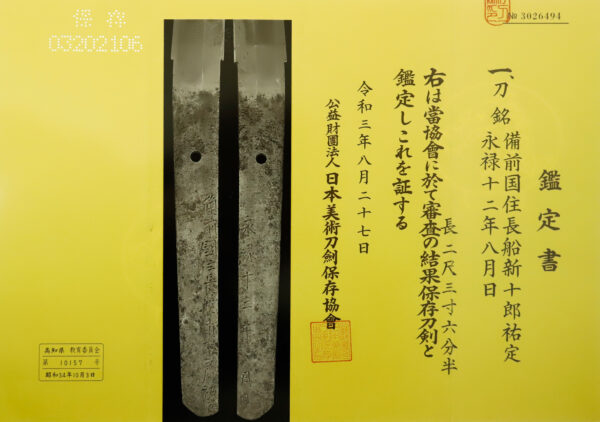 保存
03202106
№ 3026494
鑑定書
一、刀 銘 備前国住長船新十郎祐定
永禄十二年八月日
長二尺三寸六分半
右は當協會に於て審査の結果保存刀剣と
鑑定しこれを証する
令和三年八月二十七日
公益財團法人 日本美術刀劍保存協會
高知県 教育委員会
第 10157 号
昭和34年10月3日